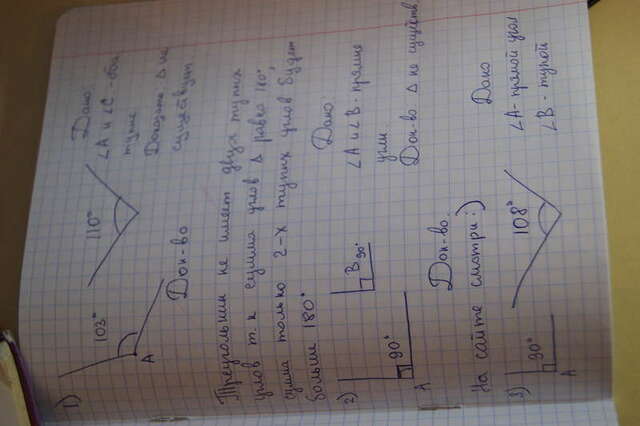 1)
103°
A
110°
Дано
∠A и ∠C - оба
тупые
Доказать Δ не
существует
Док-во
Треугольник не имеет двух тупых
углов т.к сумма углов Δ равна 180°,
сумма только 2-х тупых углов будет
больше 180°
2)
90°
A
B
90°
Дано
∠A и ∠B - прямые
углы
Док-во Δ не существ
Док-во.
На сайте смотри:)
3)
90°
A
108°
Дано
∠A - прямой угол
∠B - тупой